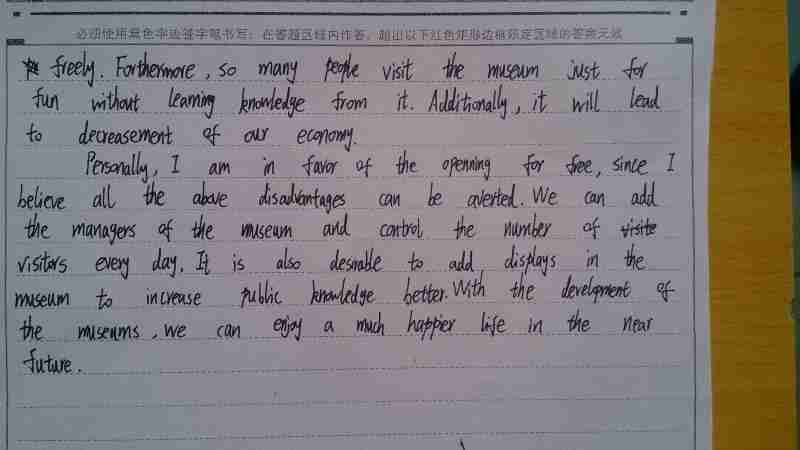 必须使用黑色字迹签字笔书写；在答题区域内作答，超出以下红色矩形边框限定区域的答案无效
freely. Forthermore, so many people visit the museum just for
fun without learning knowledge from it. Additionally, it will lead
to decreasement of our economy.
Personally, I am in favor of the openning for free, since I
believe all the above disadvantages can be averted. We can add
the managers of the museum and control the number of visite
visitors every day. It is also desirable to add displays in the
museum to increase public knowledge better. With the develpment of
the museums, we can enjoy a much happier life in the near
future.